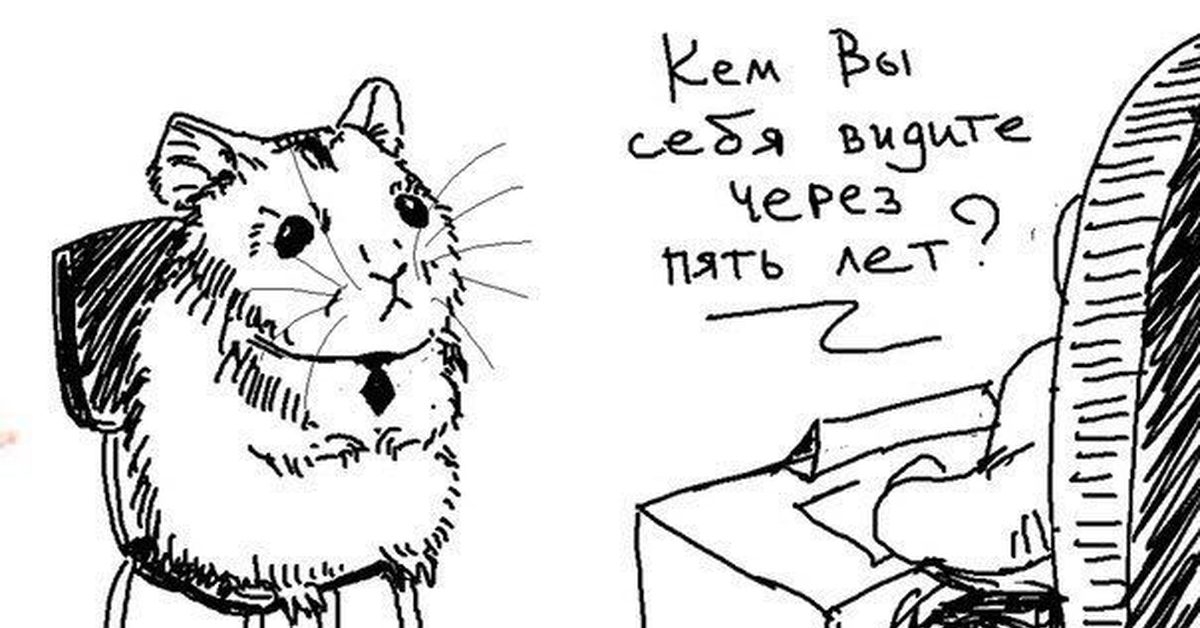 Кем Вы
себя видите
через
пять лет?